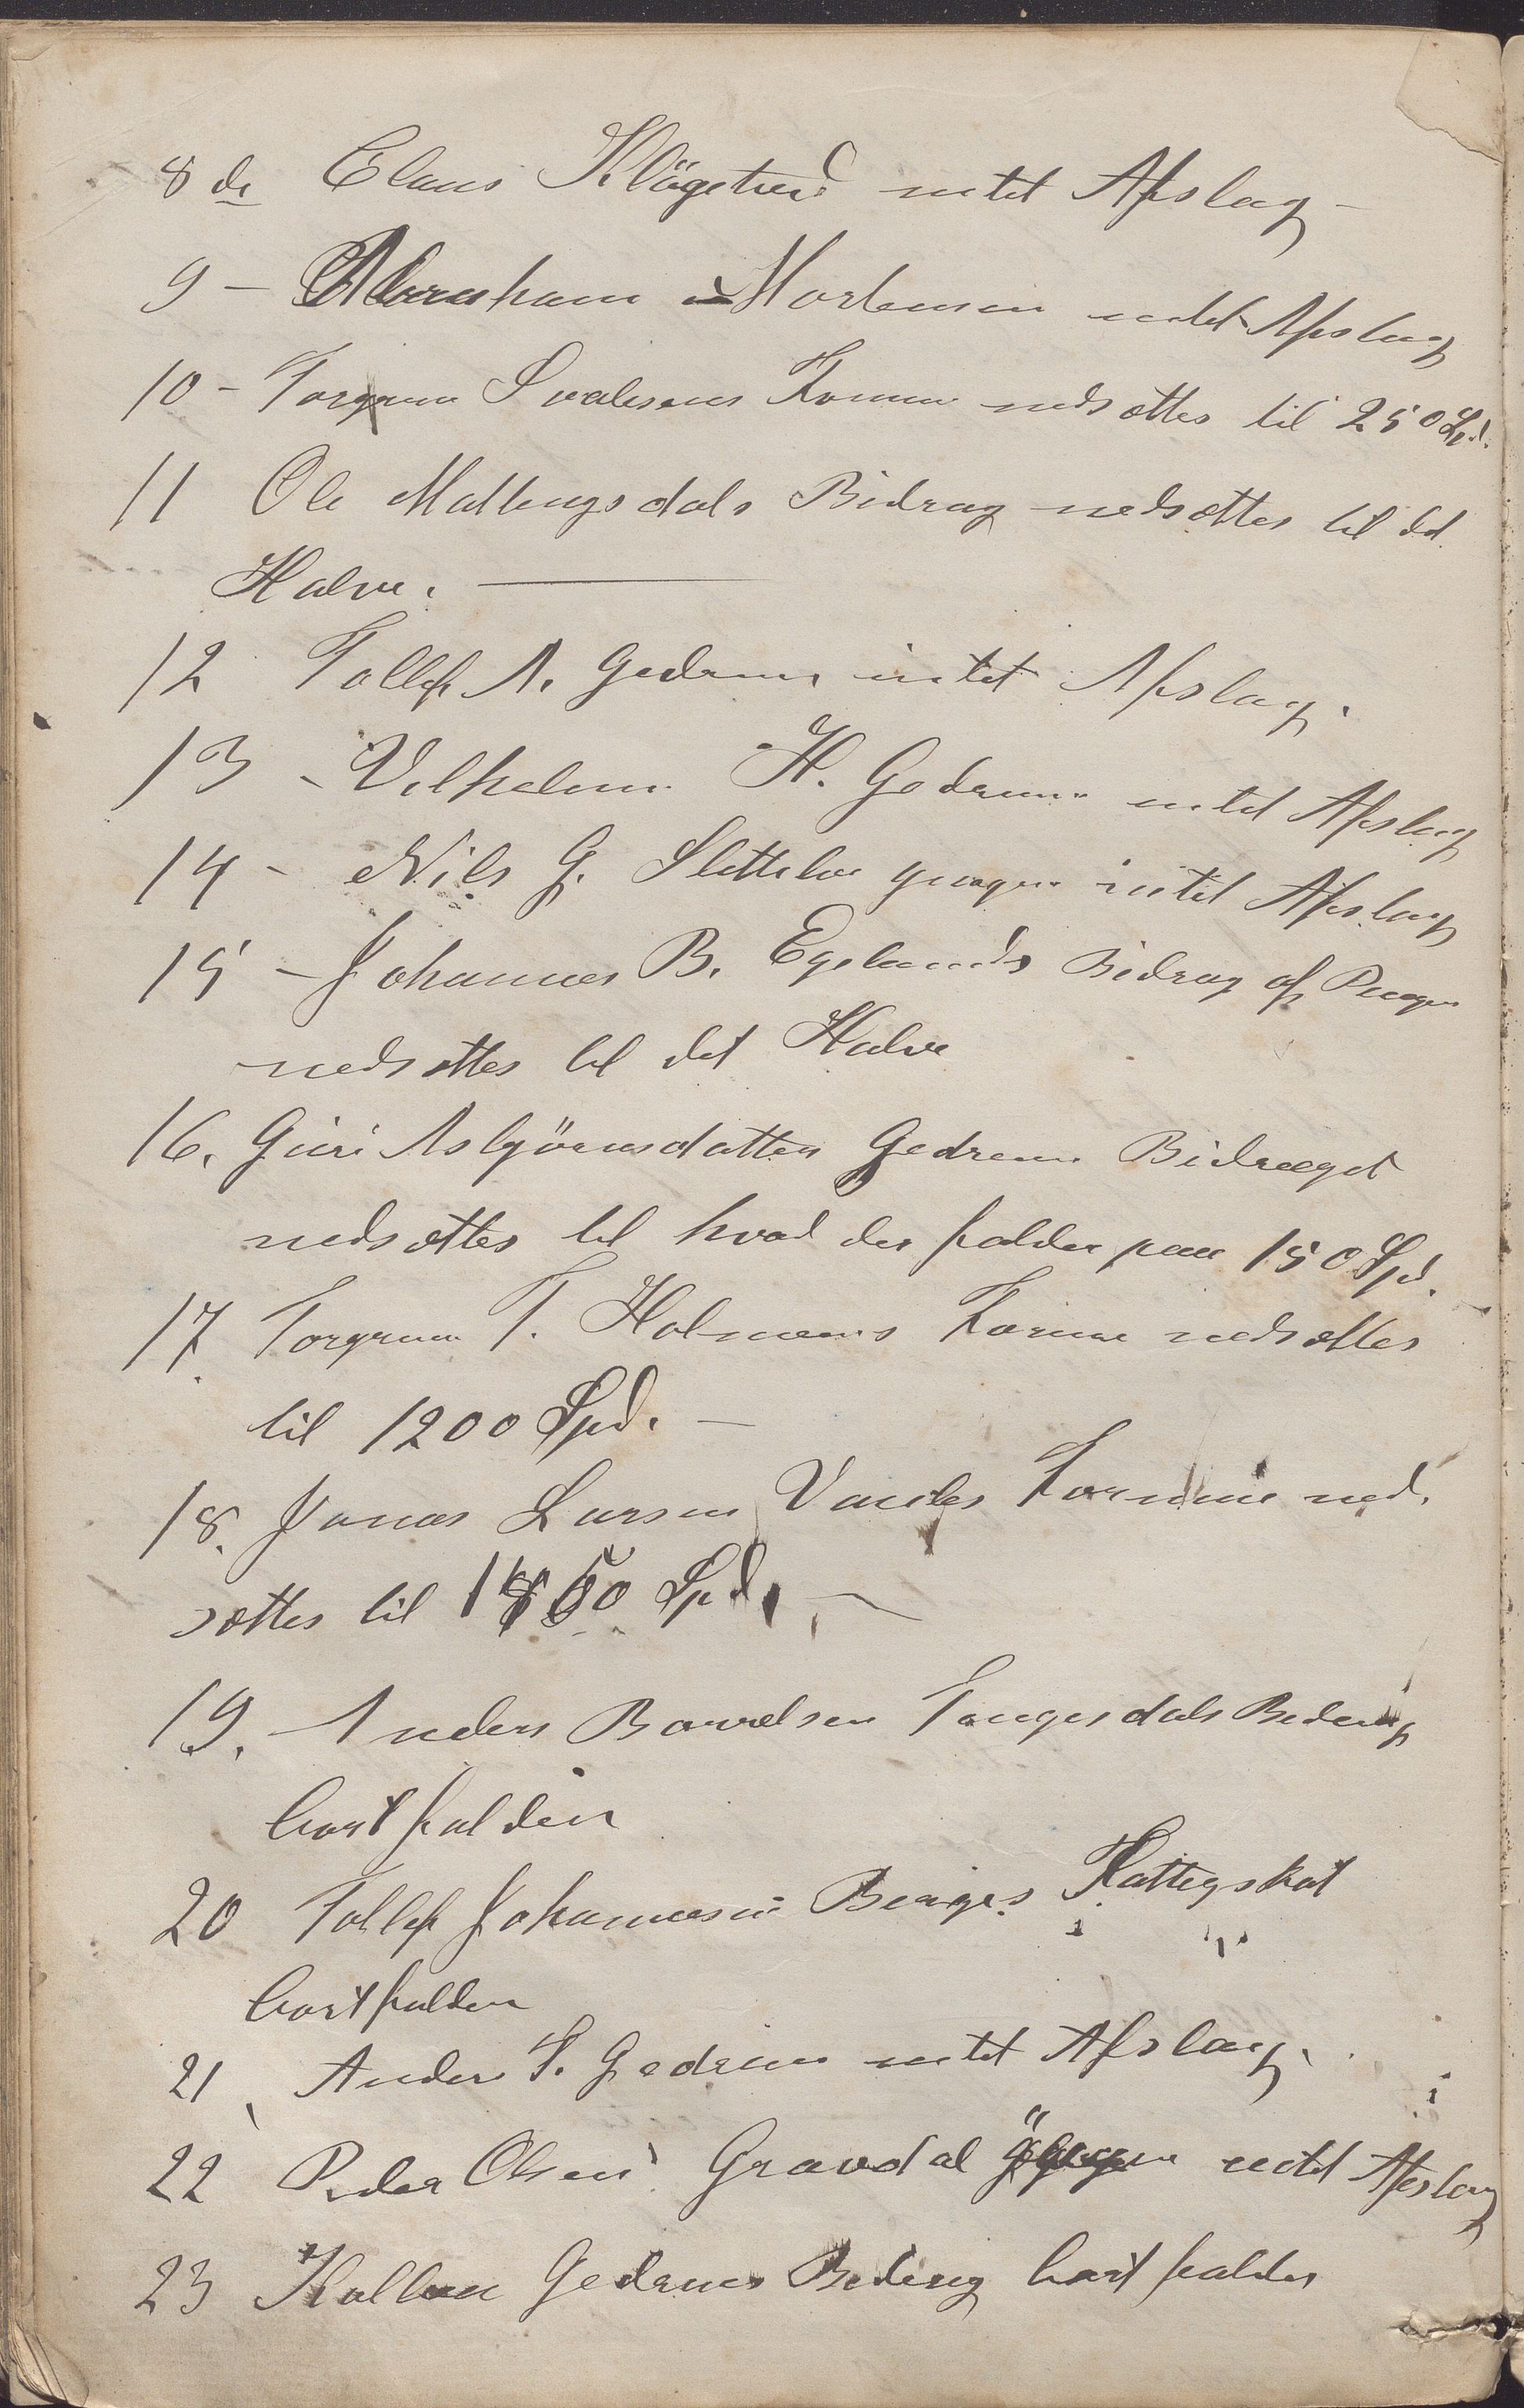 8de Claus Kløgetvedt intet Afslag –
9 – Abraham Mortensen intet Afslag
10 – Torgrim Svalesens Formue nedsættes til 250 Spd.
11 Ole Mattingsdals Bidrag nedsættes til det
Halve. —
12 Tollef A. Gedrem intet Afslag.
13 – Vilhelm H. Gedrem intet Afslag
14 – Nils G. Slettebø intet Afslag
15 – Johannes B. Egelands Bidrag af Penge
nedsættes til det Halve
16. Guri Asbjörnsdatter Gedrem Bidraget
nedsættes til hvad der falder paa 150 Spd.
17. Torgrim T. Holmens Formue nedsættes
til 1200 Spd. –
18. Jonas Larsen Formue ned-
sættes til Spd. –
19. Anders Bidrag
bortfalder
20 Tollef Johannesen Fattigskat
bortfalder
21. Anders T. Gedrem intet Afslag.
22 Peder Olsen Gravdal intet Afslag
23 Gedrems Bidrag bortfalder